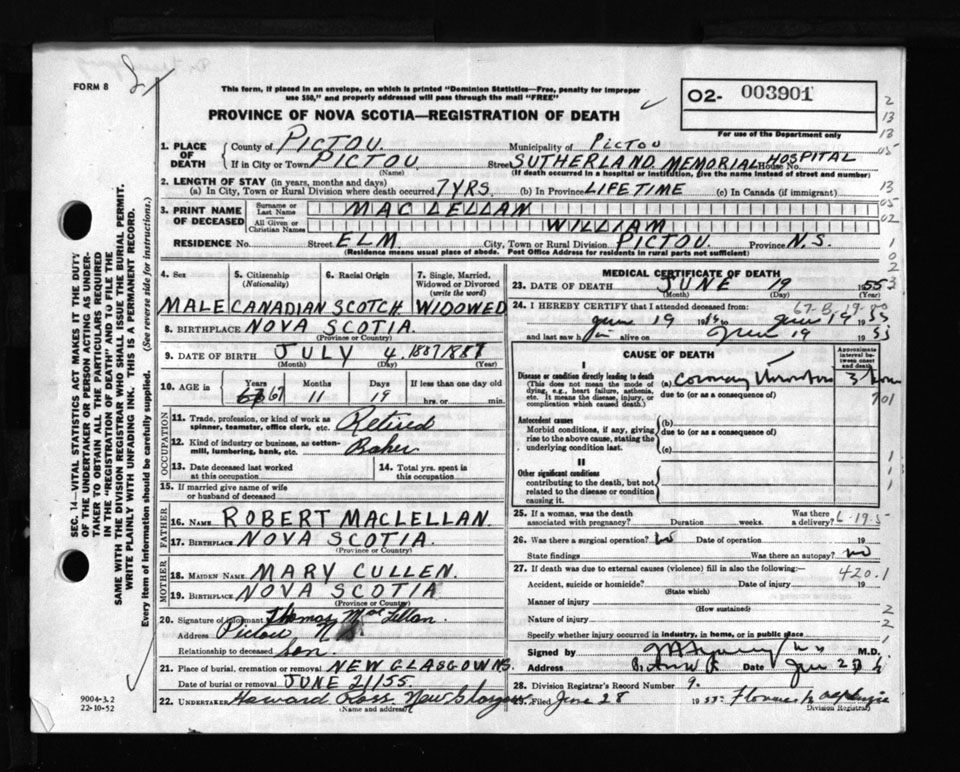 FORM 8
This form, if placed in an envelope, on which is printed "Dominion Statistics—Free, penalty for improper
use $50," and properly addressed will pass through the mail "FREE"
PROVINCE OF NOVA SCOTIA—REGISTRATION OF DEATH
02- 003901
For use of the Department only
1. PLACE OF DEATH County of PICTOU. Municipality of PICTOU
If in City or Town PICTOU (Name) Street SUTHERLAND MEMORIAL HOSPITAL House No.
(If death occurred in a hospital or institution, give the name instead of street and number)
2. LENGTH OF STAY (in years, months and days)
(a) In City, Town or Rural Division where death occurred 7 YRS. (b) In Province LIFETIME (c) In Canada (if immigrant)
3. PRINT NAME OF DECEASED Surname or Last Name MAC LELLAN
All Given or Christian Names WILLIAM
RESIDENCE No. Street ELM City, Town or Rural Division PICTOU. Province N.S.
(Residence means usual place of abode. Post Office Address for residents in rural parts not sufficient)
4. Sex 5. Citizenship (Nationality) 6. Racial Origin 7. Single, Married, Widowed or Divorced (write the word)
MALE CANADIAN SCOTCH WIDOWED
8. BIRTHPLACE NOVA SCOTIA.
(Province or Country)
9. DATE OF BIRTH JULY 4, 1887 1887
(Month) (Day) (Year)
10. AGE in Years 67 Months 11 Days 19 If less than one day old hrs. or min.
OCCUPATION
11. Trade, profession, or kind of work as spinner, teamster, office clerk, etc. Retired
12. Kind of industry or business, as cotton-mill, lumbering, bank, etc. Baker
13. Date deceased last worked at this occupation 14. Total yrs. spent in this occupation
15. If married give name of wife or husband of deceased
FATHER
16. NAME ROBERT MACLELLAN.
17. BIRTHPLACE NOVA SCOTIA.
(Province or Country)
MOTHER
18. MAIDEN NAME MARY CULLEN.
19. BIRTHPLACE NOVA SCOTIA
(Province or Country)
20. Signature of informant Thomas MacLellan.
Address Pictou N
Relationship to deceased Son.
21. Place of burial, cremation or removal NEW GLASGOW NS.
Date of burial or removal JUNE 21/55.
22. UNDERTAKER Howard Ross. New Glasgow
(Name and address)
MEDICAL CERTIFICATE OF DEATH
23. DATE OF DEATH JUNE 19 1955
(Month) (Day) (Year)
24. I HEREBY CERTIFY that I attended deceased from:
June 19 19 to June 19 19 55
and last saw h alive on June 19 19 55
CAUSE OF DEATH
Approximate interval between onset and death
I
Disease or condition directly leading to death (a) Coronary Thrombosis 3
(This does not mean the mode of dying, e.g., heart failure, asthenia, etc. It means the disease, injury, or complication which caused death.)
due to (or as a consequence of)
Antecedent causes (b)
Morbid conditions, if any, giving rise to the above cause, stating the underlying condition last.
due to (or as a consequence of)
(c)
II
Other significant conditions
contributing to the death, but not related to the disease or condition causing it.
25. If a woman, was the death associated with pregnancy? Duration weeks. Was there a delivery?
26. Was there a surgical operation? No Date of operation 19
State findings Was there an autopsy? No
27. If death was due to external causes (violence) fill in also the following:—
420.1
Accident, suicide or homicide? Date of injury 19
(State which)
Manner of injury
(How sustained)
Nature of injury
Specify whether injury occurred in industry, in home, or in public place
Signed by M.D.
Address Date
28. Division Registrar's Record Number 9.
29. Filed June 28 1955. Florence
Division Registrar
9004-J.2
22-10-52
SEC. 14—VITAL STATISTICS ACT MAKES IT THE DUTY
OF THE UNDERTAKER OR PERSON ACTING AS UNDER-
TAKER TO OBTAIN ALL THE PARTICULARS REQUIRED
IN THE "REGISTRATION OF DEATH" AND TO FILE THE
SAME WITH THE DIVISION REGISTRAR WHO SHALL ISSUE THE BURIAL PERMIT.
WRITE PLAINLY WITH UNFADING INK. THIS IS A PERMANENT RECORD.
Every item of information should be carefully supplied. (See reverse side for instructions.)